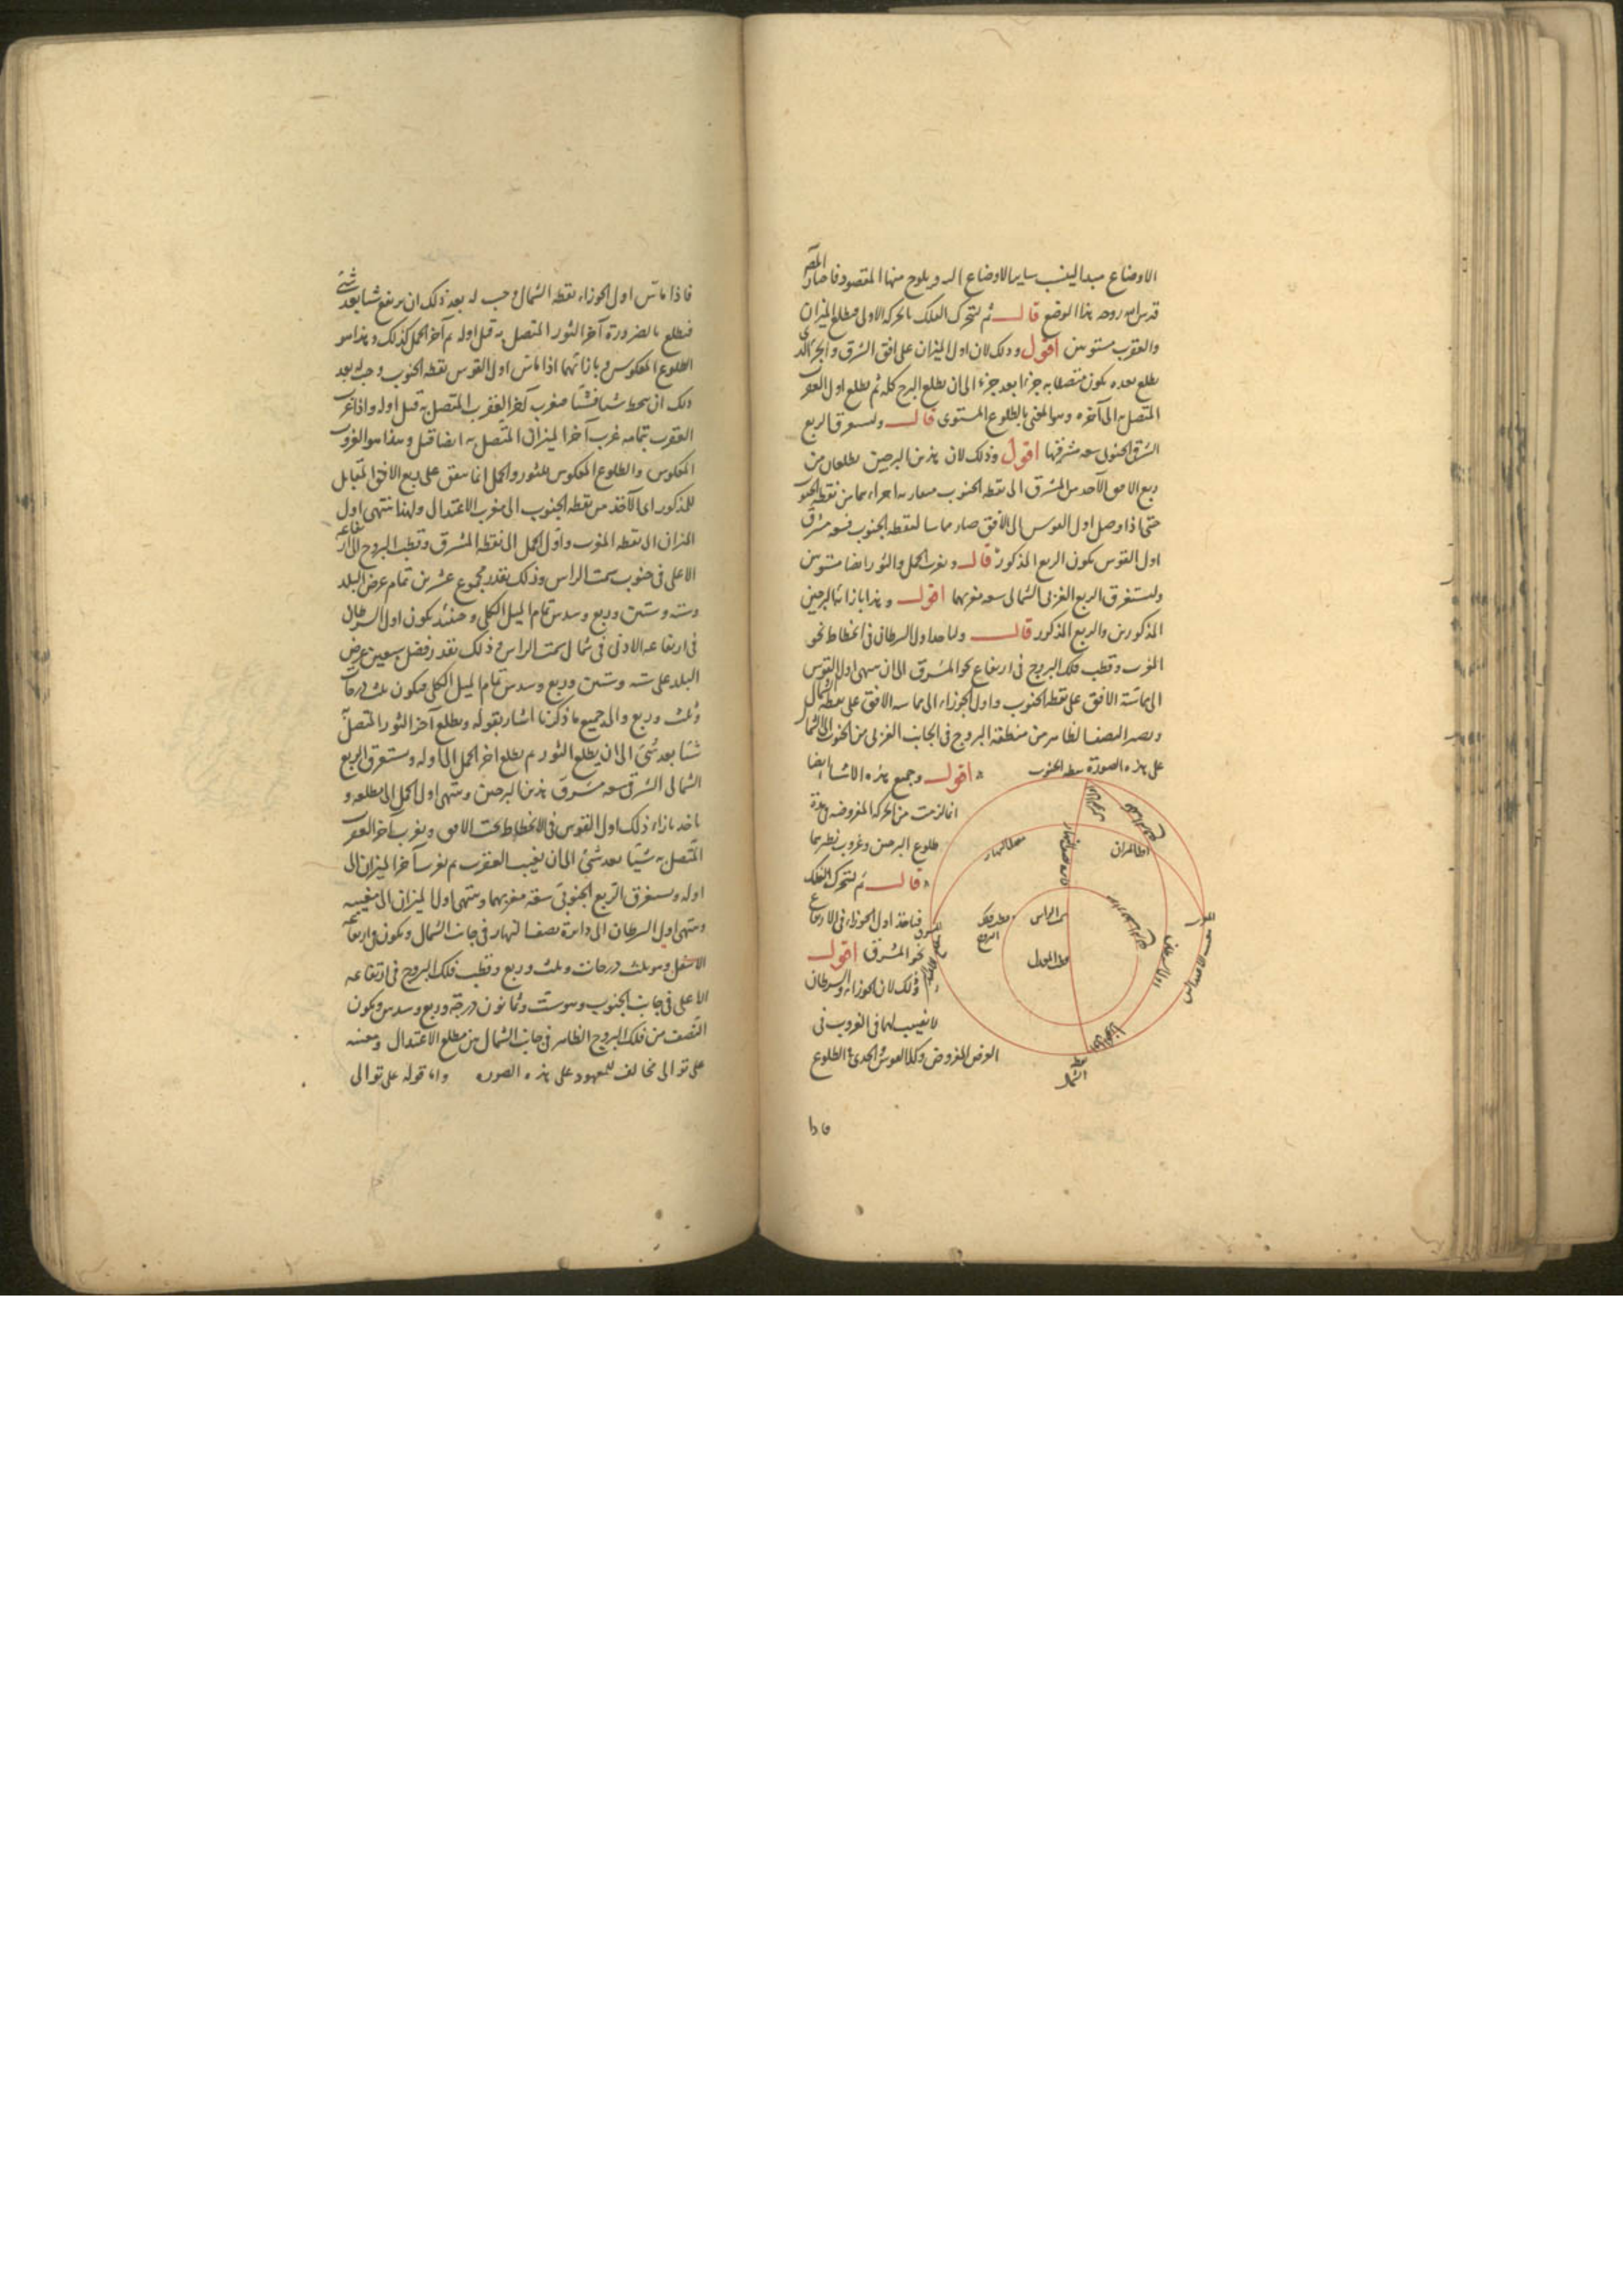 الاوضاع مبدا لينسب ساير الاوضاع اليه ويلوح منها المقصود فاختار المص
قدس الله روحه هذا الوضع قال ثم لتتحرك الفلك بالحركة الاولى فيطلع الميزان
والعقرب مستويين اقول وذلك لان اول الميزان على افق الشرق والجزء الذى
يطلع بعده يكون متصلا به جزءا بعد جزء الى ان يطلع البرج كله ثم يطلع اول العقرب
المتصل به الى آخره وهو المعنى بالطلوع المستوى قال ويستغرق الربع
الشرقى الجنوبى سعة مشرقهما اقول وذلك لان هذين البرجين يطلعان من
ربع الافق الآخذ من المشرق الى نقطة الجنوب اجزاءهما من نقطة الجنوب
حتى اذا وصل اول القوس الى الافق صار مماسا لنقطة الجنوب فسعة مشرق
اول القوس يكون الربع المذكور قال ويغرب الحمل والثور ايضا مستويين
ويستغرق الربع الغربى الشمالى سعة مغربهما اقول وهذا بازاء البرجين
المذكورين والربع المذكور قال وياخذ اول السرطان فى انحطاط نحو
المغرب وقطب فلك البروج فى ارتفاع نحو المشرق الى ان ينتهى اول القوس
الى مماسة الافق على نقطة الجنوب واول الجوزاء الى مماسة الافق على نقطة الشمال
ويصير النصف الظاهر من منطقة البروج فى الجانب الغربى من الجنوب الى الشمال
على هذه الصورة نقطة الجنوب
اقول وجميع هذه الاشيا ايضا
انما لزمت من الحركة المفروضة فى مدة
طلوع البرجين وغروب نظيرهما
قال ثم لتتحرك الفلك
فياخذ اول الجوزاء فى الارتفاع
نحو المشرق اقول
وذلك لان الجوزاء والسرطان
لا نصيب لهما فى الغروب فى
العرض المفروض وكذا القوس والجدى فى الطلوع
اول الميزان
معدل النهار
دايرة نصف النهار
سمت الراس
قطب فلك البروج
قطب المعدل
اول السرطان
مغرب الاعتدالين
نقطة الشمال
فاذا
فاذا ماس اول الجوزاء نقطة الشمال وجب له بعد ذلك ان يرتفع شيا بعد شئ
فيطلع بالضرورة آخر الثور المتصل به قبل اوله ثم آخر الحمل كذلك وهذا هو
الطلوع المعكوس وبازائهما اذا ماس اول القوس نقطة الجنوب وجب له بعد
ذلك ان ينحط شيا فشيا فيغرب آخر العقرب المتصل به قبل اوله واذا غرب
العقرب بتمامه غرب آخر الميزان المتصل به ايضا قبل وهذا هو الغروب
المعكوس والطلوع المعكوس للثور والحمل انما يتفق على ربع الافق المقابل
للمذكور اى الآخذ من نقطة الجنوب الى مغرب الاعتدال ولهذا ينتهى اول
الميزان الى نقطة المغرب واول الحمل الى نقطة المشرق وقطب البروج الى ارتفاعه
الاعلى فى جنوب سمت الراس وذلك بقدر مجموع عشرين تمام عرض البلد
وستة وستين وربع وسدس تمام الميل الكلى وحينئذ يكون اول السرطان
فى ارتفاعه الادنى فى شمال سمت الراس وذلك بقدر فضل سبعين عرض
البلد على ستة وستين وربع وسدس تمام الميل الكلى فيكون ثلث درجات
وثلث وربع والى جميع ما ذكرنا اشار بقوله ويطلع آخر الثور المتصل
شيا بعد شئ الى ان يطلع الثور ثم يطلع اخر الحمل الى اوله ويستغرق الربع
الشمالى الشرقى سعة مشرق هذين البرجين وينتهى اول الحمل الى مطلعه و
ياخذ بازاء ذلك اول القوس فى الانحطاط تحت الافق ويغرب آخر العقرب
المتصل به شيئا بعد شئ الى ان يغيب العقرب ثم يغرب آخر الميزان الى
اوله ويستغرق الربع الجنوبى سعة مغربهما وينتهى اول الميزان الى مغيبه
وينتهى اول السرطان الى دائرة نصف النهار فى جانب الشمال ويكون فى ارتفاعه
الاسفل وهو ثلث درجات وثلث وربع وقطب فلك البروج فى ارتفاعه
الاعلى فى جانب الجنوب وهو ست وثمانون درجة وربع وسدس ويكون
النصف من فلك البروج الظاهر فى جانب الشمال من مطلع الاعتدال ومغيبه
على توالى مخالف للمعهود على هذه الصورة وانما قوله على توالى